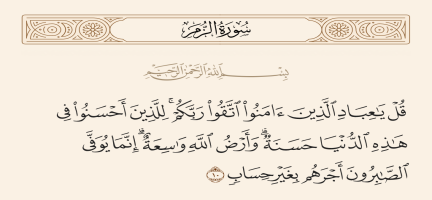 سُورَةُ الزُّمَرِ
بِسْمِ اللَّهِ الرَّحْمَٰنِ الرَّحِيمِ
قُلْ يَٰعِبَادِ ٱلَّذِينَ ءَامَنُوا۟ ٱتَّقُوا۟ رَبَّكُمْ ۚ لِلَّذِينَ أَحْسَنُوا۟ فِى
هَٰذِهِ ٱلدُّنْيَا حَسَنَةٌ ۗ وَأَرْضُ ٱللَّهِ وَٰسِعَةٌ ۗ إِنَّمَا يُوَفَّى
ٱلصَّٰبِرُونَ أَجْرَهُم بِغَيْرِ حِسَابٍ ١٠